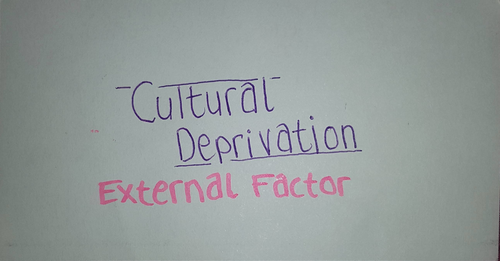 Cultural
Deprivation
External Factor